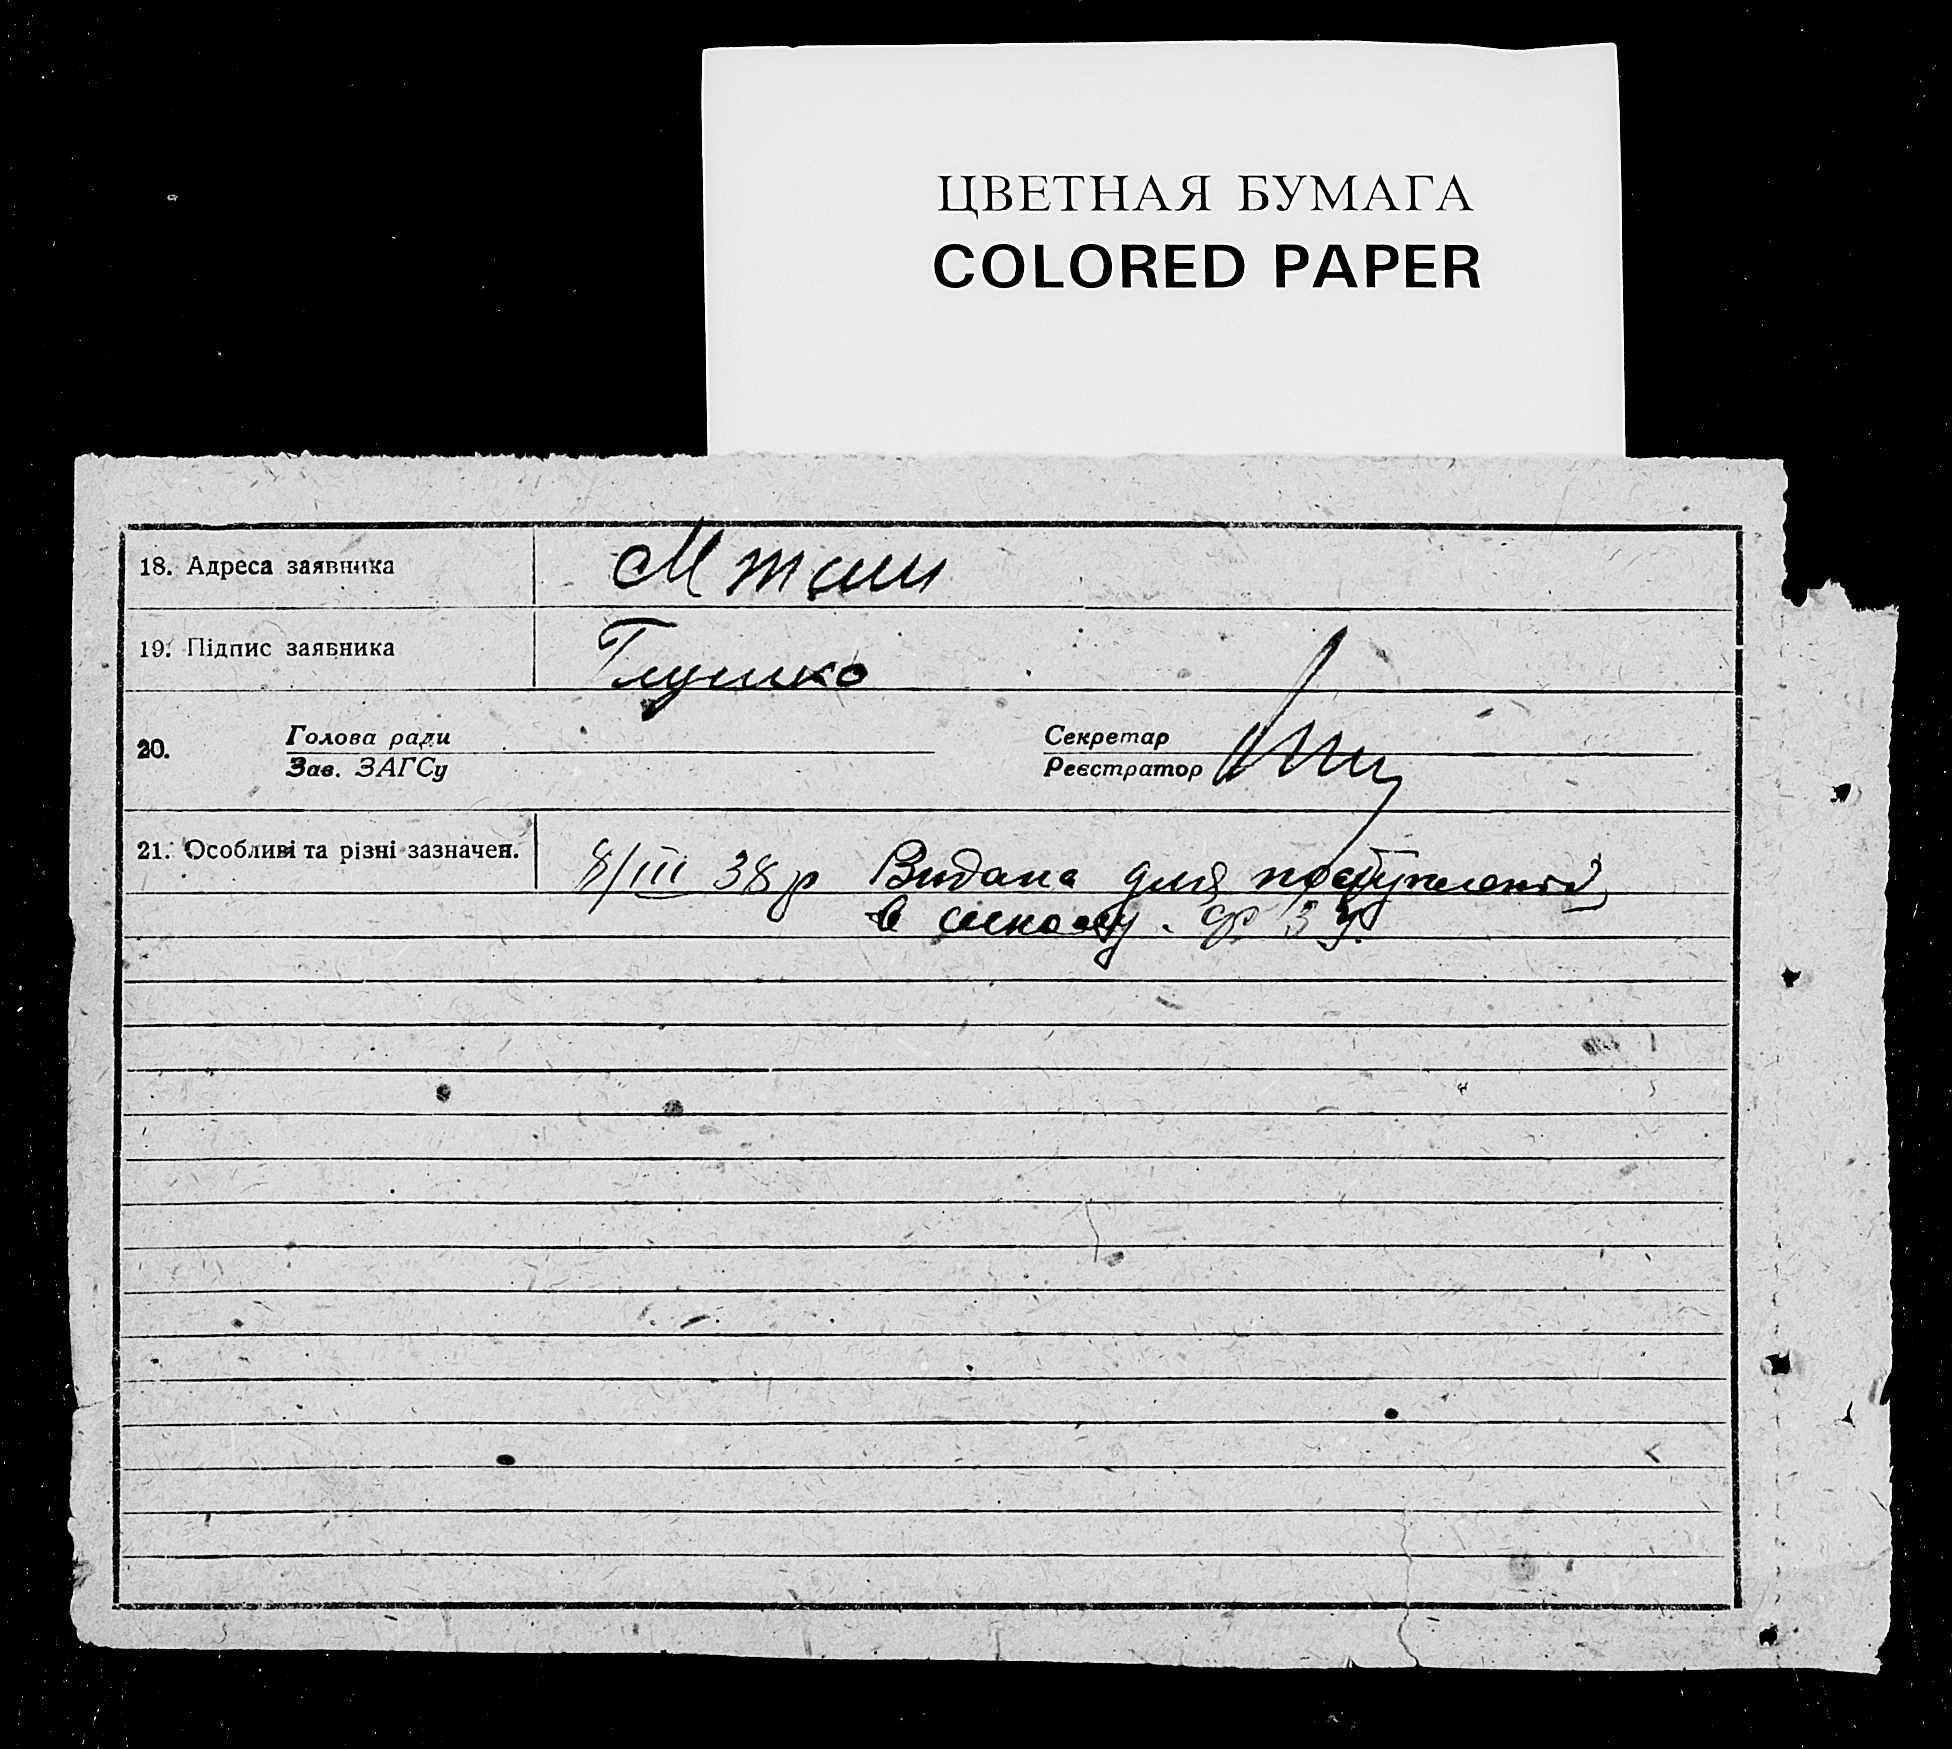 ЦВЕТНАЯ БУМАГА
COLORED PAPER
18. Адреса заявника
19. Підпис заявника Глушко
20. Голова ради Секретар
Зав. ЗАГСу Реєстратор
21. Особливі та різні зазначен. 8/III 38 р Видана для поступления
в школу.